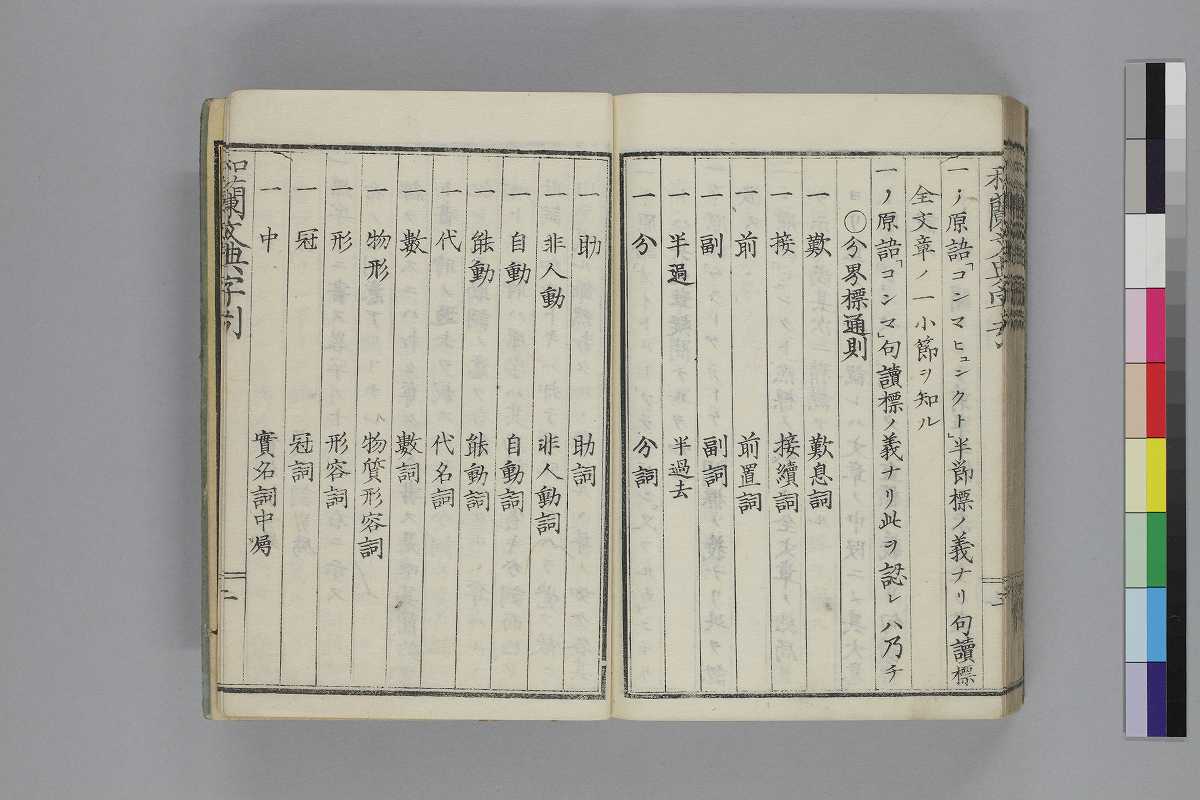 一ノ原語「コンマヒュンクト」半節標ノ義ナリ句讀標
全文章ノ一小節ヲ知ル
一ノ原語「コンマ」句讀標ノ義ナリ此ヲ認レハ乃チ
○分界標通則
一 歎 歎息詞
一 接 接續詞
一 前 前置詞
一 副 副詞
一 半過 半過去
一 分 分詞
一 助 助詞
一 非人動 非人動詞
一 自動 自動詞
一 能動 能動詞
一 代 代名詞
一 數 數詞
一 物形 物質形容詞
一 形 形容詞
一 冠 冠詞
一 中 實名詞中局
和蘭文典字列
二